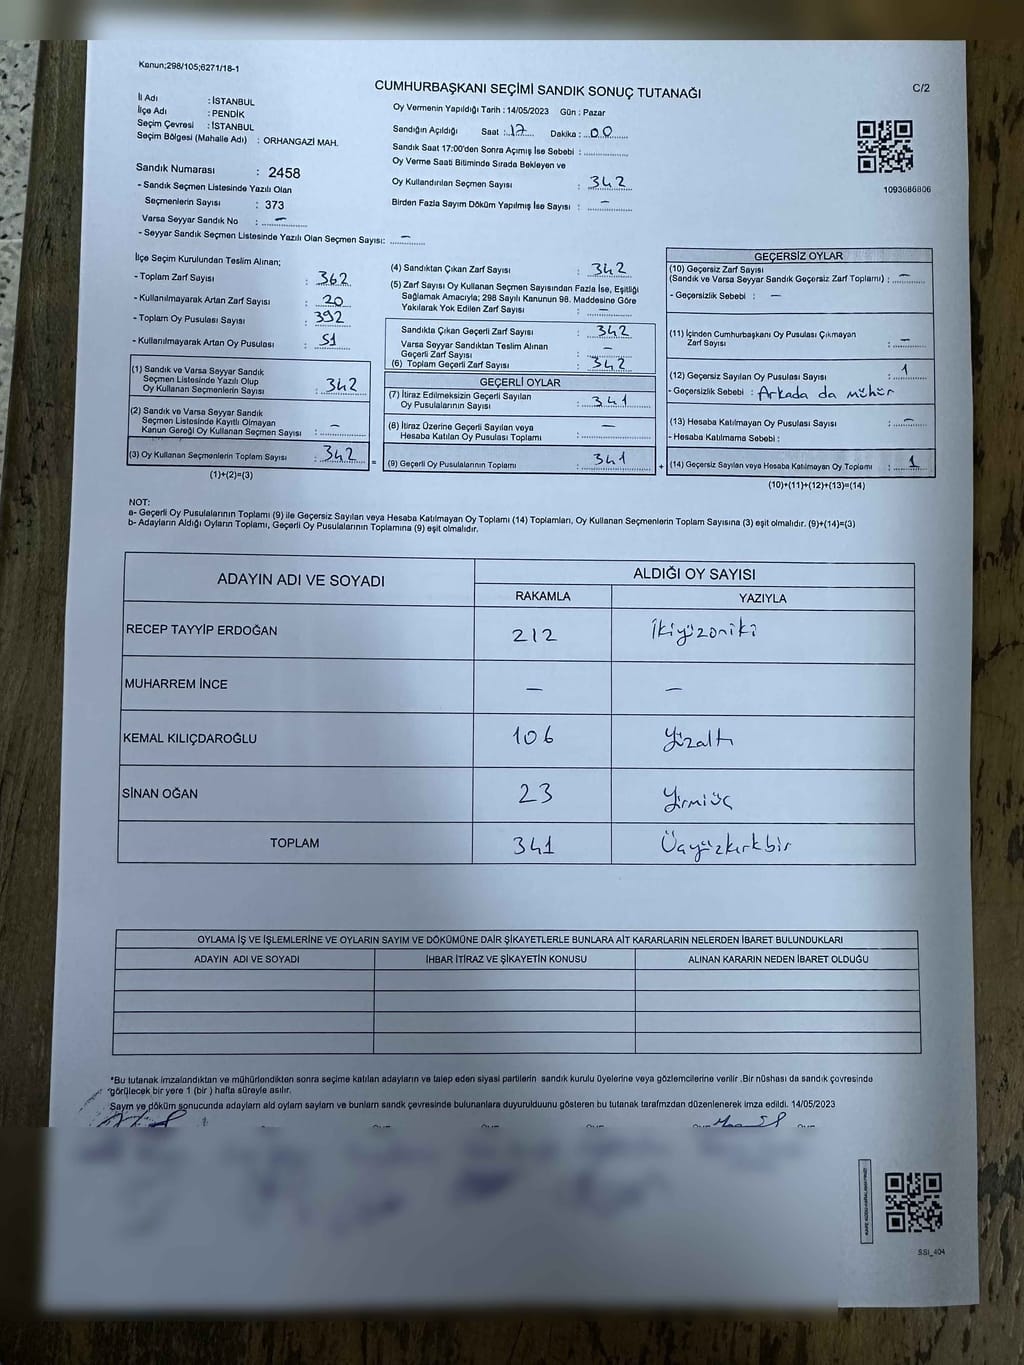 Kanun;298/105;6271/18-1
CUMHURBAŞKANI SEÇİMİ SANDIK SONUÇ TUTANAĞI
C/2
İl Adı : İSTANBUL
İlçe Adı : PENDİK
Seçim Çevresi : İSTANBUL
Seçim Bölgesi (Mahalle Adı) : ORHANGAZİ MAH.
Sandık Numarası : 2458
- Sandık Seçmen Listesinde Yazılı Olan
Seçmenlerin Sayısı : 373
Varsa Seyyar Sandık No : —
- Seyyar Sandık Seçmen Listesinde Yazılı Olan Seçmen Sayısı: —
Oy Vermenin Yapıldığı Tarih : 14/05/2023 Gün : Pazar
Sandığın Açıldığı Saat : 17 Dakika : 00
Sandık Saat 17:00'den Sonra Açımış İse Sebebi :
Oy Verme Saati Bitiminde Sırada Bekleyen ve
Oy Kullandırılan Seçmen Sayısı : 342
Birden Fazla Sayım Döküm Yapılmış İse Sayısı : —
1093686806
İlçe Seçim Kurulundan Teslim Alınan;
- Toplam Zarf Sayısı : 362
- Kullanılmayarak Artan Zarf Sayısı : 20
- Toplam Oy Pusulası Sayısı : 392
- Kullanılmayarak Artan Oy Pusulası : 51
(1) Sandık ve Varsa Seyyar Sandık
Seçmen Listesinde Yazılı Olup
Oy Kullanan Seçmenlerin Sayısı : 342
(2) Sandık ve Varsa Seyyar Sandık
Seçmen Listesinde Kayıtlı Olmayan
Kanun Gereği Oy Kullanan Seçmen Sayısı : —
(3) Oy Kullanan Seçmenlerin Toplam Sayısı : 342
(1)+(2)=(3)
(4) Sandıktan Çıkan Zarf Sayısı : 342
(5) Zarf Sayısı Oy Kullanan Seçmen Sayısından Fazla İse, Eşitliği
Sağlamak Amacıyla; 298 Sayılı Kanunun 98. Maddesine Göre
Yakılarak Yok Edilen Zarf Sayısı : —
Sandıkta Çıkan Geçerli Zarf Sayısı : 342
Varsa Seyyar Sandıktan Teslim Alınan
Geçerli Zarf Sayısı : —
(6) Toplam Geçerli Zarf Sayısı : 342
GEÇERLİ OYLAR
(7) İtiraz Edilmeksizin Geçerli Sayılan
Oy Pusulalarının Sayısı : 341
(8) İtiraz Üzerine Geçerli Sayılan veya
Hesaba Katılan Oy Pusulası Toplamı : —
= (9) Geçerli Oy Pusulalarının Toplamı : 341 +
GEÇERSİZ OYLAR
(10) Geçersiz Zarf Sayısı
(Sandık ve Varsa Seyyar Sandık Geçersiz Zarf Toplamı) : —
- Geçersizlik Sebebi : —
(11) İçinden Cumhurbaşkanı Oy Pusulası Çıkmayan
Zarf Sayısı : —
(12) Geçersiz Sayılan Oy Pusulası Sayısı : 1
- Geçersizlik Sebebi : Arkada da mühür
(13) Hesaba Katılmayan Oy Pusulası Sayısı : —
- Hesaba Katılmama Sebebi :
(14) Geçersiz Sayılan veya Hesaba Katılmayan Oy Toplamı : 1
(10)+(11)+(12)+(13)=(14)
NOT:
a- Geçerli Oy Pusulalarının Toplamı (9) ile Geçersiz Sayılan veya Hesaba Katılmayan Oy Toplamı (14) Toplamları, Oy Kullanan Seçmenlerin Toplam Sayısına (3) eşit olmalıdır. (9)+(14)=(3)
b- Adayların Aldığı Oyların Toplamı, Geçerli Oy Pusulalarının Toplamına (9) eşit olmalıdır.
ADAYIN ADI VE SOYADI ALDIĞI OY SAYISI
RAKAMLA YAZIYLA
RECEP TAYYİP ERDOĞAN 212 İkiyüzoniki
MUHARREM İNCE — —
KEMAL KILIÇDAROĞLU 106 Yüzaltı
SİNAN OĞAN 23 Yirmiüç
TOPLAM 341 Üçyüzkırkbir
OYLAMA İŞ VE İŞLEMLERİNE VE OYLARIN SAYIM VE DÖKÜMÜNE DAİR ŞİKAYETLERLE BUNLARA AİT KARARLARIN NELERDEN İBARET BULUNDUKLARI
ADAYIN ADI VE SOYADI İHBAR İTİRAZ VE ŞİKAYETİN KONUSU ALINAN KARARIN NEDEN İBARET OLDUĞU
*Bu tutanak imzalandıktan ve mühürlendikten sonra seçime katılan adayların ve talep eden siyasi partilerin sandık kurulu üyelerine veya gözlemcilerine verilir .Bir nüshası da sandık çevresinde
görülecek bir yere 1 (bir ) hafta süreyle asılır.
Sayım ve döküm sonucunda adayların ald oyların sayların ve bunların sandk çevresinde bulunanlara duyurulduunu gösteren bu tutanak tarafmzdan düzenlenerek imza edildi. 14/05/2023
SSI_404